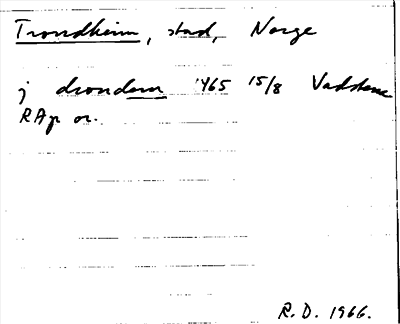 Trondheim, stad, Norge
j drondem 1465 15/8 Vadstena
RAp or.
R.D. 1966.